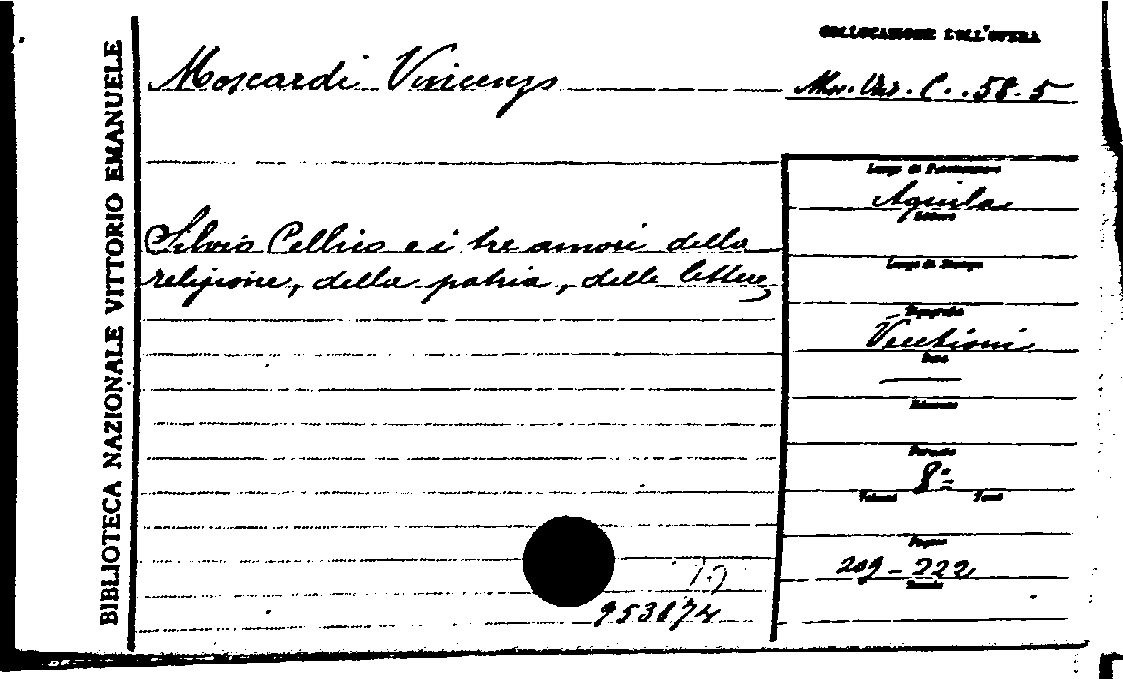 BIBLIOTECA NAZIONALE VITTORIO EMANUELE
COLLOCAZIONE DELL'OPERA
Moscardi Vincenzo
Misc. C. . 58. 5
Luogo di Pubblicazione
Aquila
Editore
Silvio Pellico e i tre amori della
religione, della patria, delle lettere
Luogo di Stampa
Tipografia
Vecchioni
Data
Edizione
Formato
8º
Volumi Tomi
Pagine
209 - 222
953874